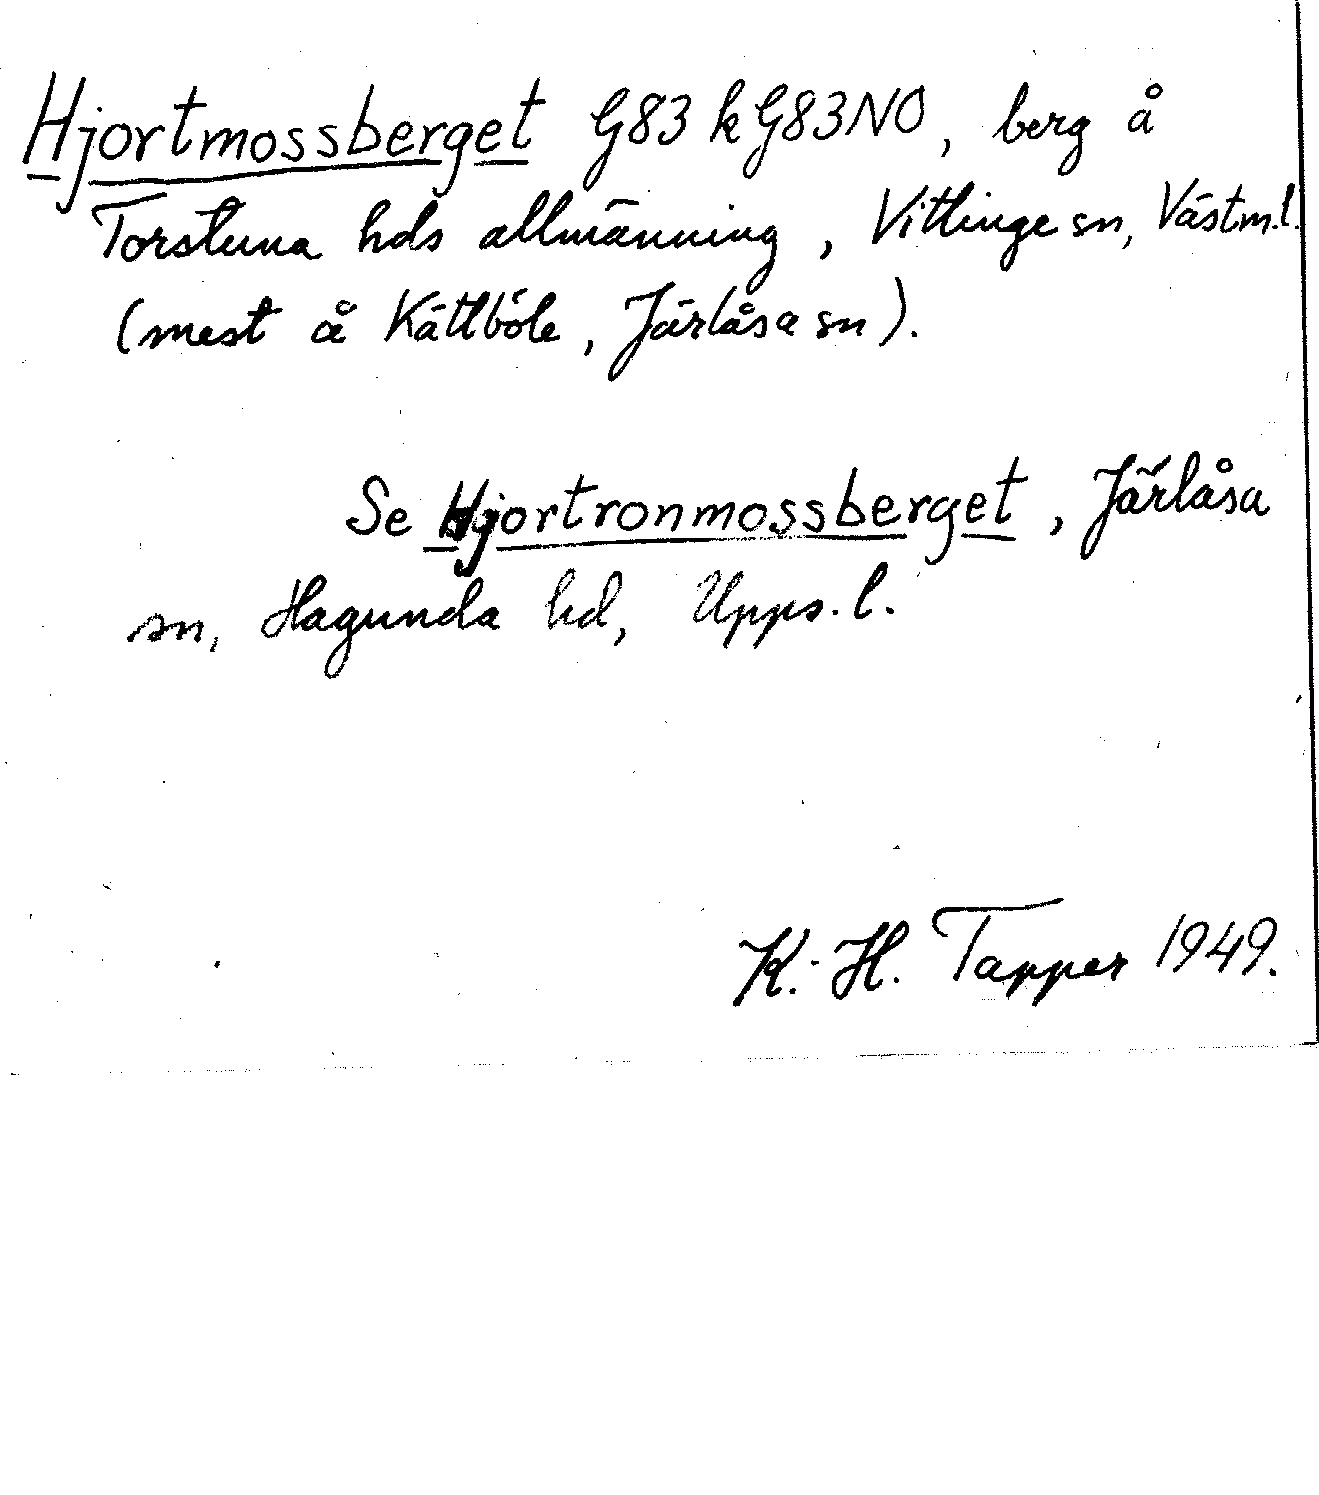 Hjortmossberget G83 k G83NO, berg å
Torstuna hds allmänning, Vittinge sn, Västm.l.
(mest å Kättböle, Järlåsa sn).
Se Hjortronmossberget, Järlåsa
sn, Hagunda hd, Upps.l.
K.-H. Tapper 1949.